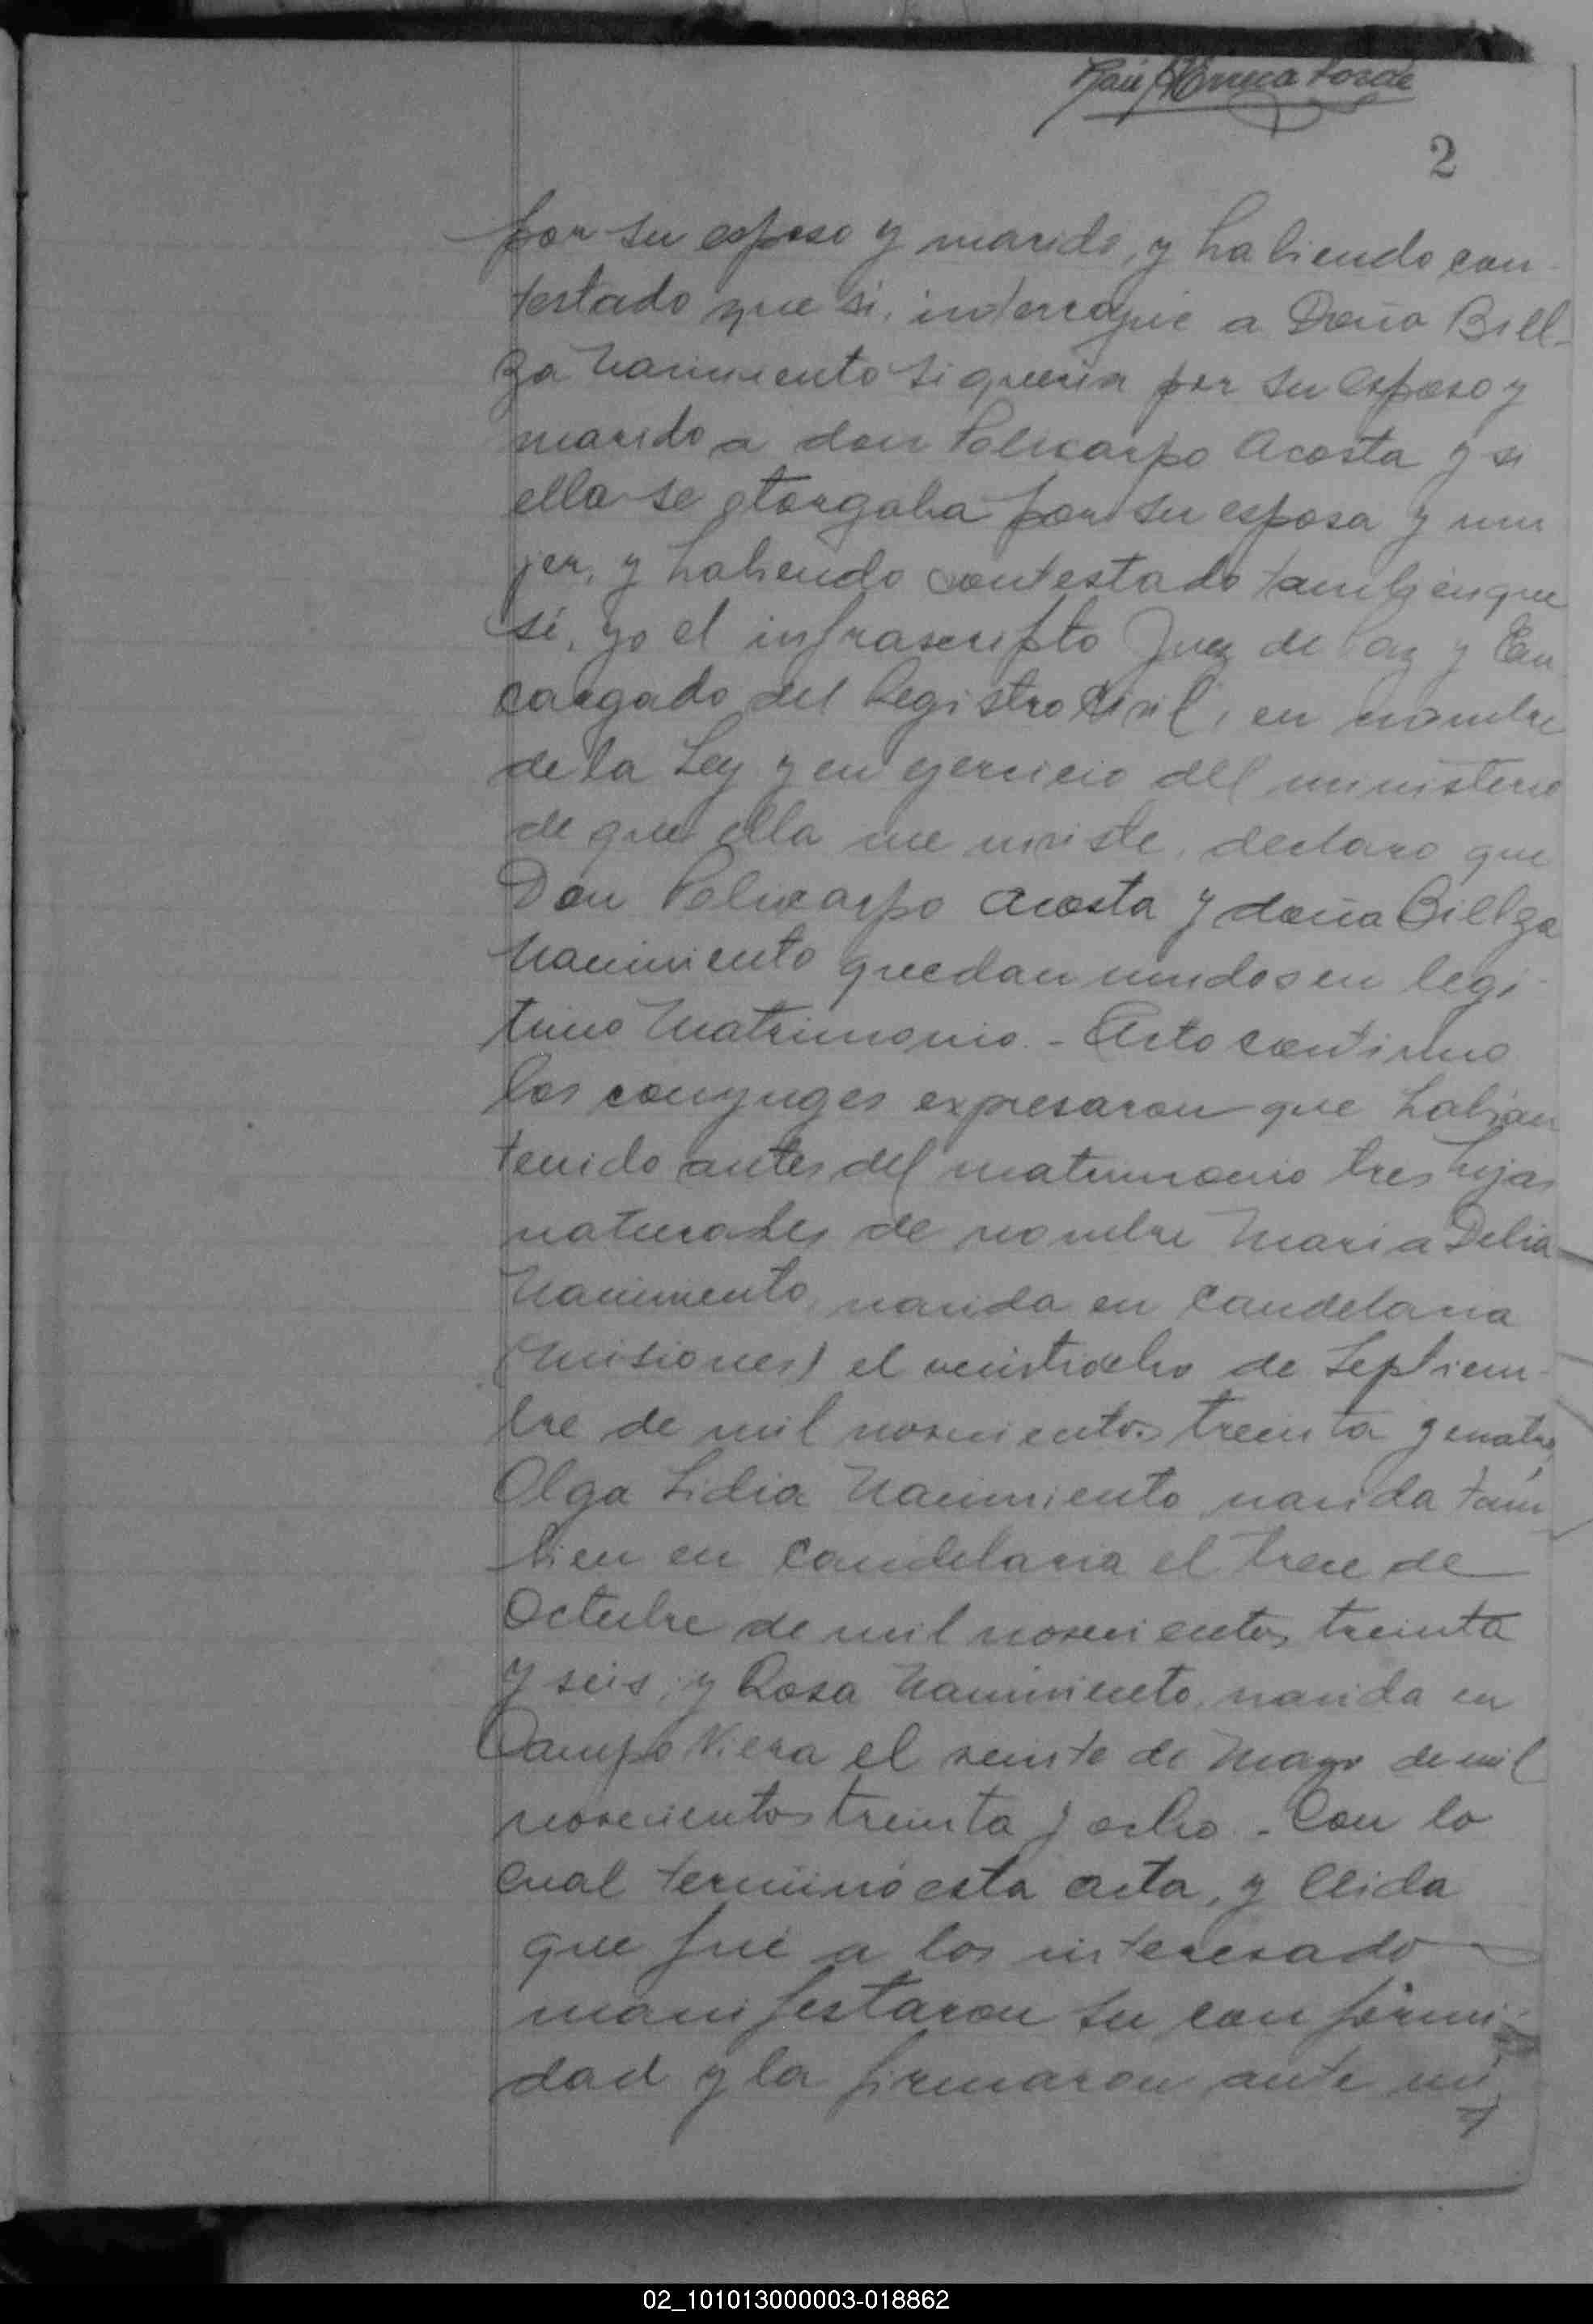 2
por su esposo y marido, y habiendo con-
testado que si, interrogué a Doña Bill-
ga Nacimiento si queria por su esposo y
marido a don Policarpo Acosta y si
ella se otorgaba por su esposa y mu
jer, y habiendo contestado también que
si, yo el infrascripto Juez de Paz y En
cargado del Registro Civil, en nombre
de la Ley y en ejercicio del ministerio
de que ella me inviste, declaro que
Don Policarpo Acosta y doña Billga
Nacimiento quedan unidos en legi-
timo Matrimonio. - Acto continuo
los conyuges expresaron que habian
tenido antes del matrimonio tres hijas
naturales de nombre Maria Delia
Nacimiento, nacida en Candelaria
(Misiones) el veintiocho de Septiem-
bre de mil novecientos treinta y cuatro,
Olga Lidia Nacimiento nacida tam
bien en Candelaria el trece de
Octubre de mil novecientos treinta
y seis, y Rosa Nacimiento, nacida en
Campo Viera el veinte de Mayo de mil
novecientos treinta y ocho. - Con lo
cual terminó esta acta, y lleida
que fué a los interesado
manifestaron su conformi-
dad y la firmaron ante mi,
02_101013000003-018862